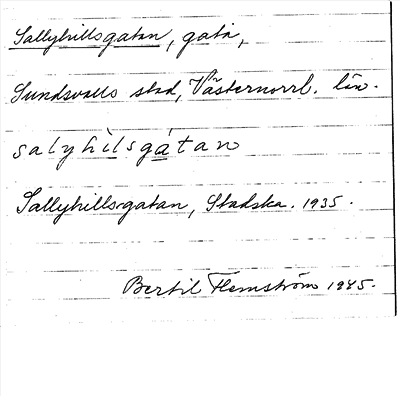 Sallyhillsgatan, gata,
Sundsvalls stad, Västernorrl. län.
salyhìlsgátan
Sallyhillsgatan, Stadska. 1935.
Bertil Flemström 1985.